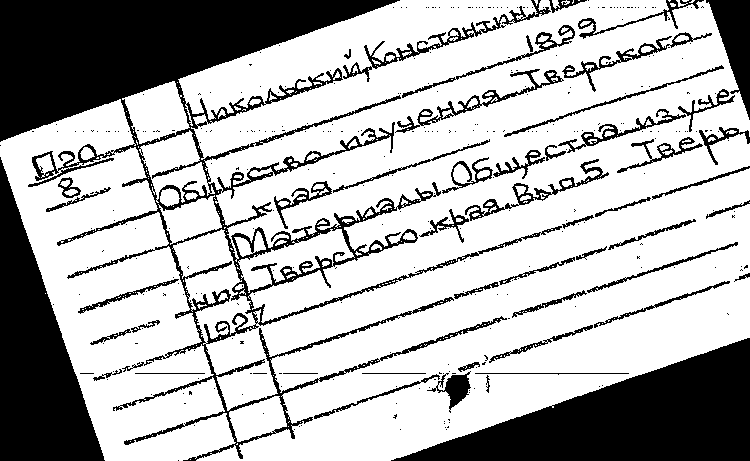 Никольский, Константин
1899
П20
8
Общество изучения Тверского
края.
Материалы Общества изуче-
ния Тверского края. Вып. 5 Тверь,
1927